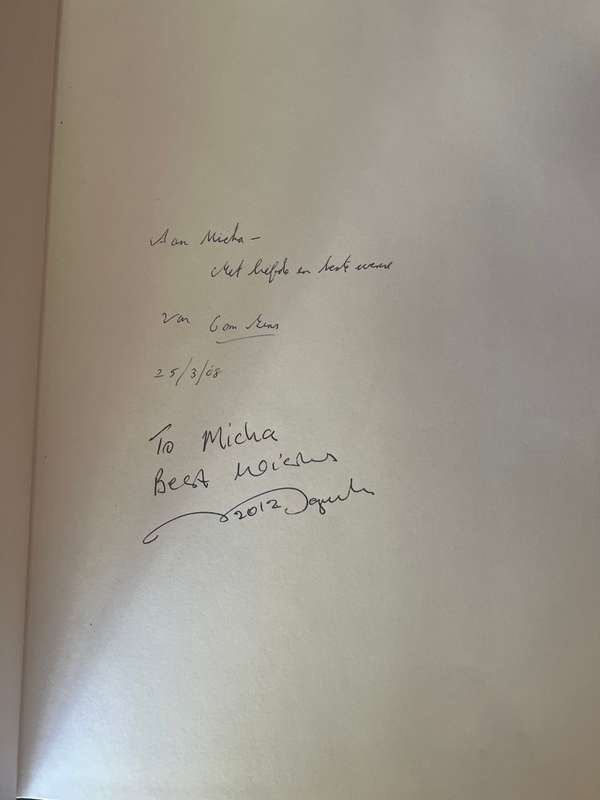 Aan Micha –
Met liefde en beste wense
Van Oom
25/3/08
To Micha
Best Wishes
2012